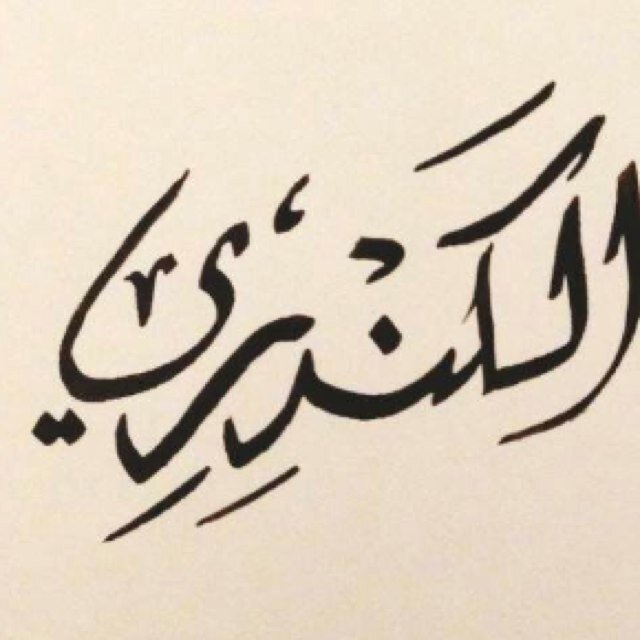 الكَنْدِرِي